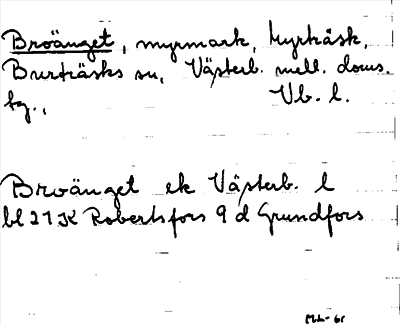 Broänget, myrmark, Myrkåsk,
Burträsks sn, Västerb. mell. doms.
tg., Vb. l.
Broänget ek Västerb. l
bl 21 K Robertsfors 9 d Grundfors